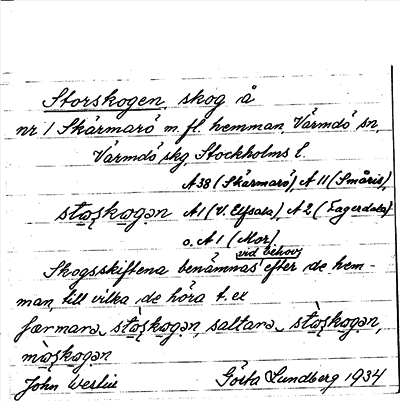 Storskogen, skog å
nr 1 Skärmarö m.fl. hemman, Värmdö sn,
Värmdö skg, Stockholms l.
A38 (Skärmarö), A11 (Småris),
stọ̀ʂkogən A1 (V. Elfsala), A2 (Fagerdala)
o. A1 (Mor)
vid behov
Skogsskiftena benämnas efter de hem-
man, till vilka de höra t.ex
færmara stọ̀ʂkogən, saltara stọ̀ʂkogən,
mọ̀ʂkogən
John Westin Gösta Lundberg 1934